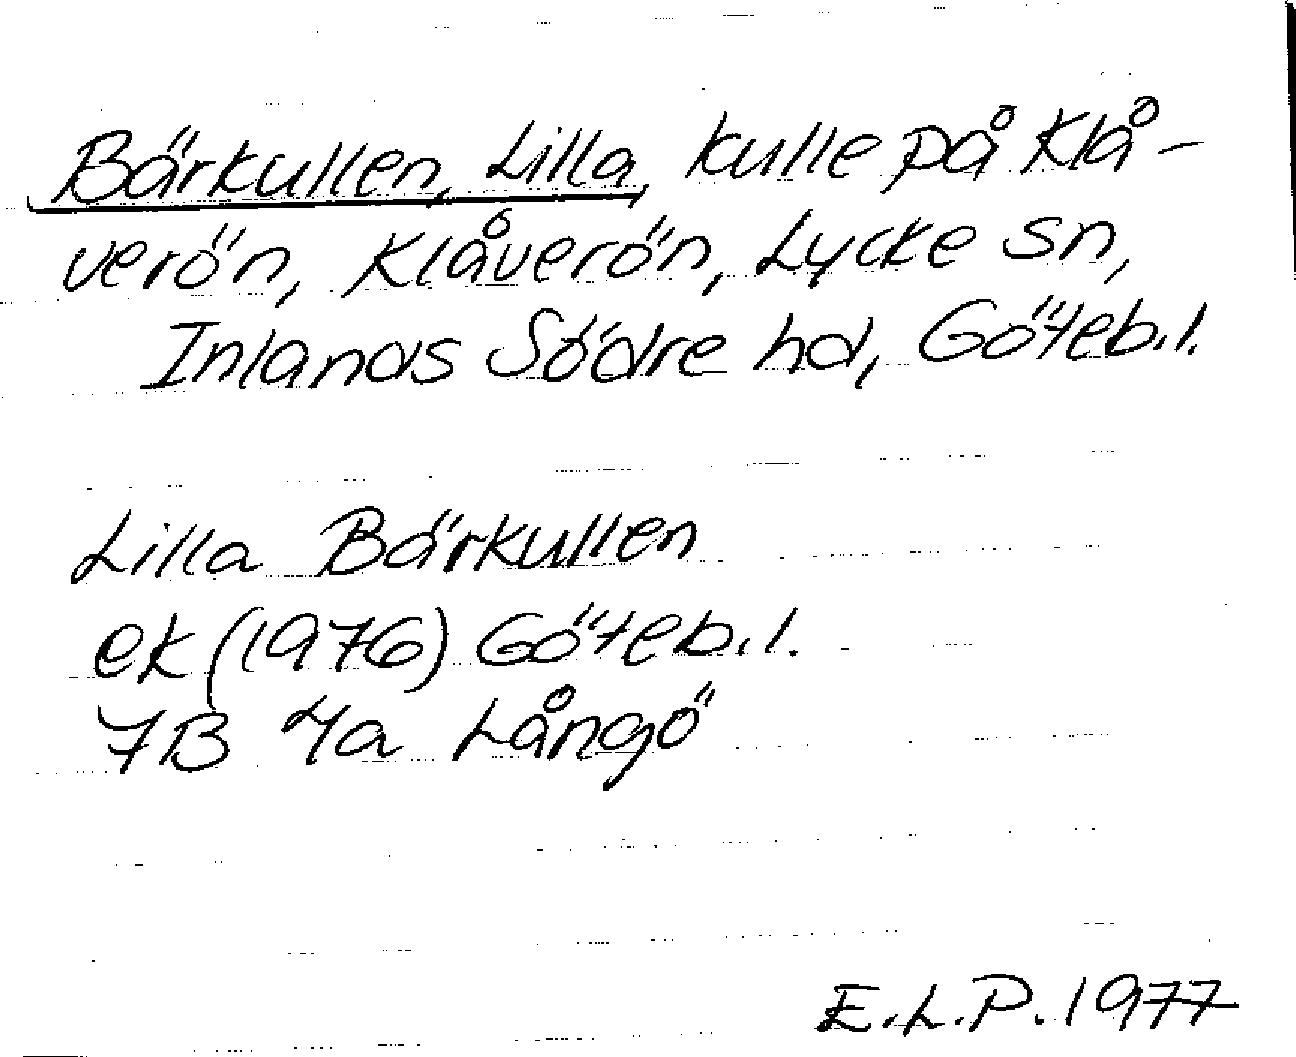 Bärkullen, Lilla, kulle på Klå-
verön, Klåverön, Lycke sn,
Inlands Södre hd, Göteb.l.
Lilla Bärkullen
ek (1976) Göteb.l.
7B 4a Långö
E.L.P. 1977